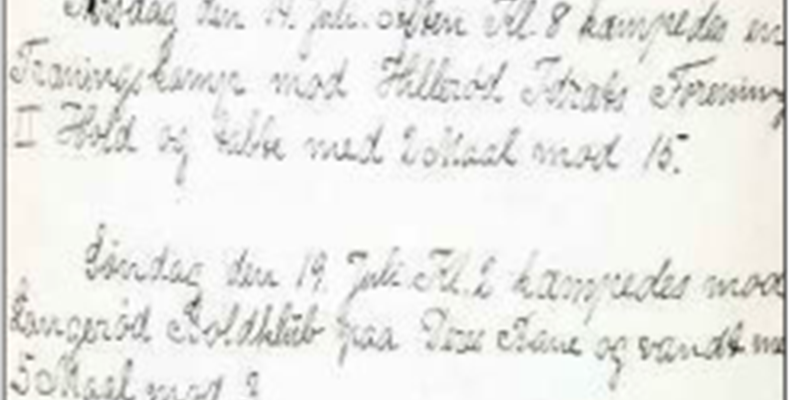 dag den 14. Juli. Aften Kl 8 kæmpedes en
Træningskamp mod Hillerød Idræts Forening
II Hold og tabte med 2 Maal mod 15.
Søndag den 19. Juli Kl. 2 kæmpedes mod
Boldklub paa Deres Bane og vandt me
5 Maal mod 2